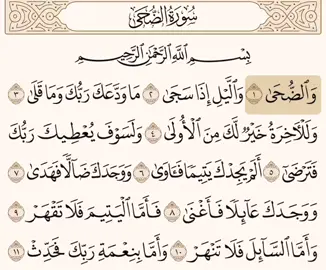 سُورَةُ الضُّحَى
بِسْمِ اللَّهِ الرَّحْمَٰنِ الرَّحِيمِ
وَالضُّحَىٰ ١ وَاللَّيْلِ إِذَا سَجَىٰ ٢ مَا وَدَّعَكَ رَبُّكَ وَمَا قَلَىٰ ٣
وَلَلْآخِرَةُ خَيْرٌ لَّكَ مِنَ الْأُولَىٰ ٤ وَلَسَوْفَ يُعْطِيكَ رَبُّكَ
فَتَرْضَىٰ ٥ أَلَمْ يَجِدْكَ يَتِيمًا فَآوَىٰ ٦ وَوَجَدَكَ ضَالًّا فَهَدَىٰ ٧
وَوَجَدَكَ عَائِلًا فَأَغْنَىٰ ٨ فَأَمَّا الْيَتِيمَ فَلَا تَقْهَرْ ٩
وَأَمَّا السَّائِلَ فَلَا تَنْهَرْ ١٠ وَأَمَّا بِنِعْمَةِ رَبِّكَ فَحَدِّثْ ١١